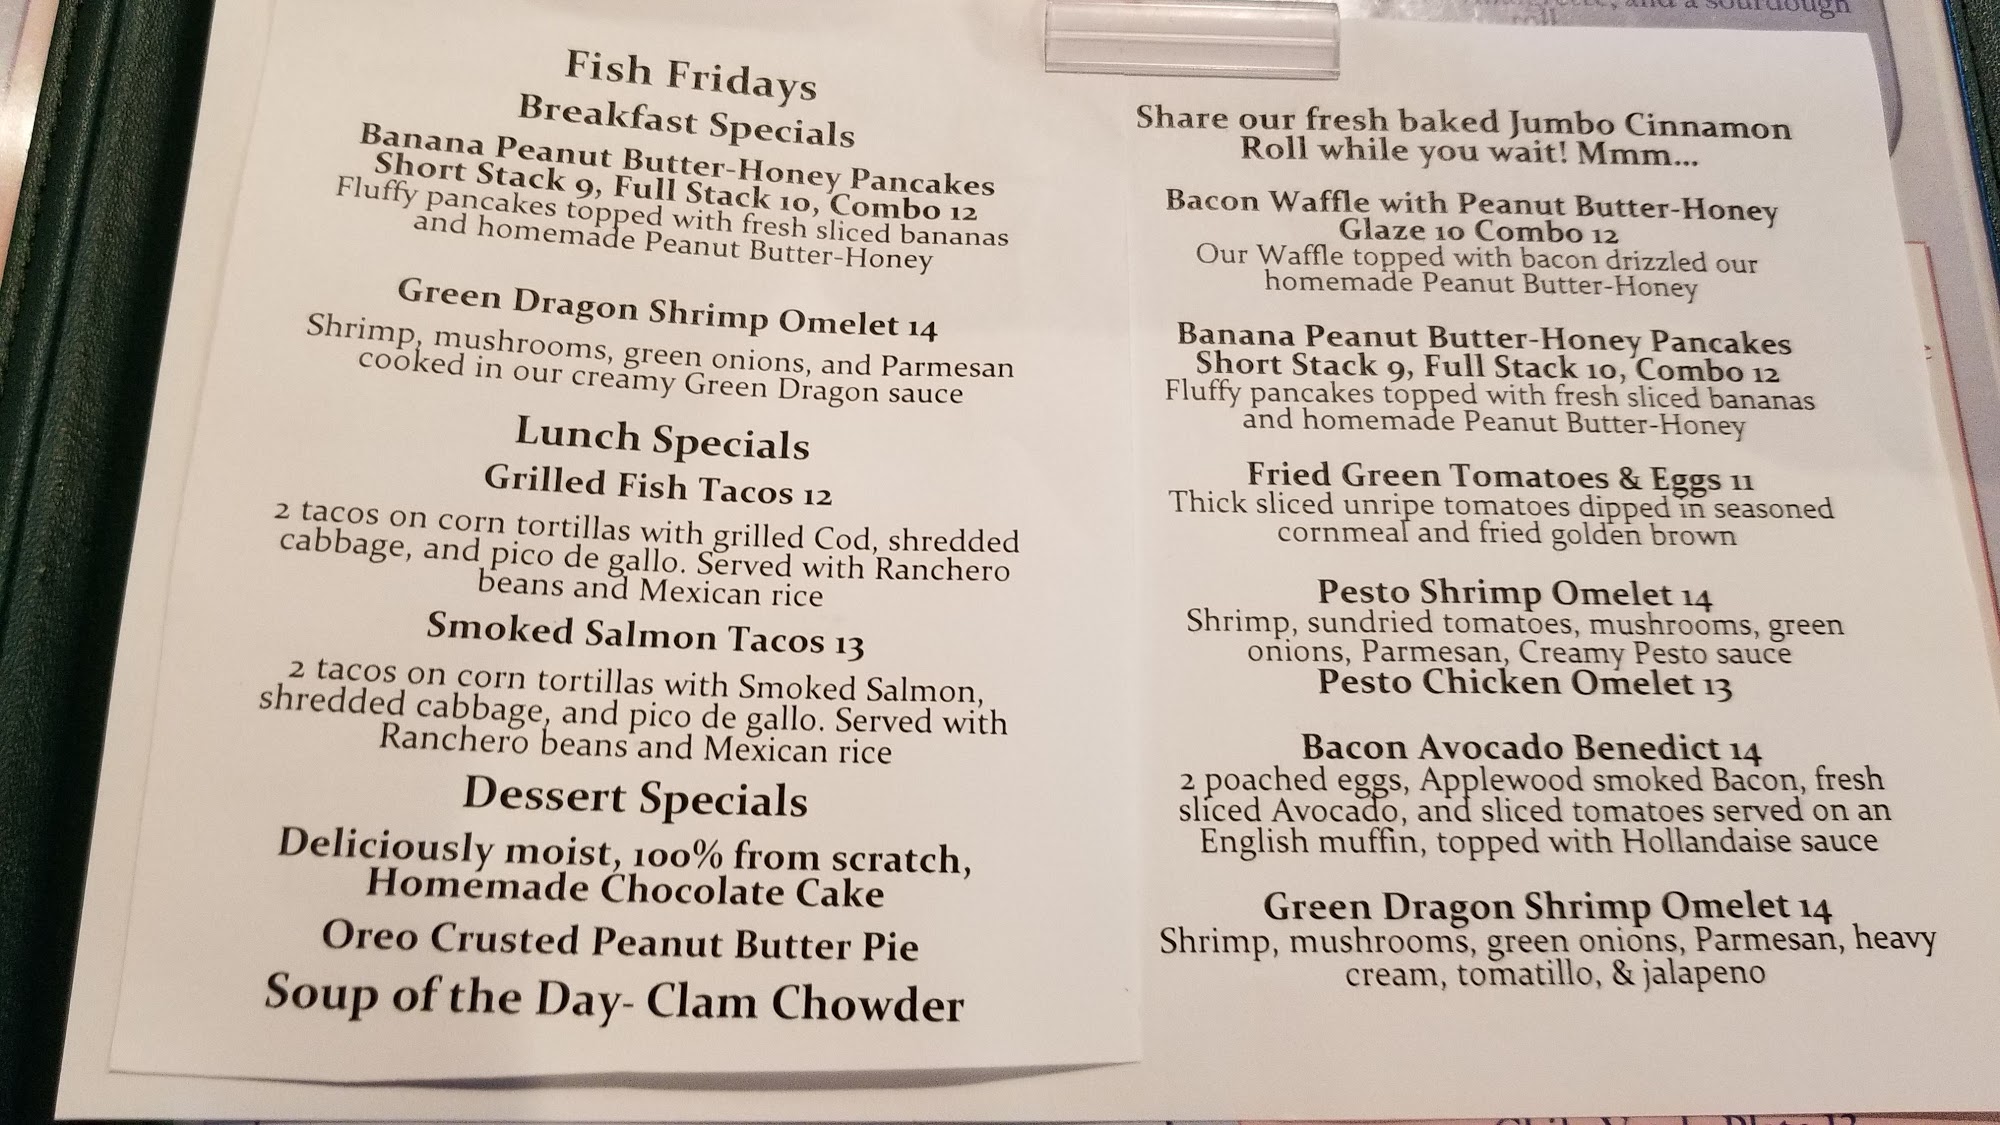 Fish Fridays
Breakfast Specials
Banana Peanut Butter-Honey Pancakes
Short Stack 9, Full Stack 10, Combo 12
Fluffy pancakes topped with fresh sliced bananas
and homemade Peanut Butter-Honey
Green Dragon Shrimp Omelet 14
Shrimp, mushrooms, green onions, and Parmesan
cooked in our creamy Green Dragon sauce
Lunch Specials
Grilled Fish Tacos 12
2 tacos on corn tortillas with grilled Cod, shredded
cabbage, and pico de gallo. Served with Ranchero
beans and Mexican rice
Smoked Salmon Tacos 13
2 tacos on corn tortillas with Smoked Salmon,
shredded cabbage, and pico de gallo. Served with
Ranchero beans and Mexican rice
Dessert Specials
Deliciously moist, 100% from scratch,
Homemade Chocolate Cake
Oreo Crusted Peanut Butter Pie
Soup of the Day- Clam Chowder
and a sourdough
roll
Share our fresh baked Jumbo Cinnamon
Roll while you wait! Mmm...
Bacon Waffle with Peanut Butter-Honey
Glaze 10 Combo 12
Our Waffle topped with bacon drizzled our
homemade Peanut Butter-Honey
Banana Peanut Butter-Honey Pancakes
Short Stack 9, Full Stack 10, Combo 12
Fluffy pancakes topped with fresh sliced bananas
and homemade Peanut Butter-Honey
Fried Green Tomatoes & Eggs 11
Thick sliced unripe tomatoes dipped in seasoned
cornmeal and fried golden brown
Pesto Shrimp Omelet 14
Shrimp, sundried tomatoes, mushrooms, green
onions, Parmesan, Creamy Pesto sauce
Pesto Chicken Omelet 13
Bacon Avocado Benedict 14
2 poached eggs, Applewood smoked Bacon, fresh
sliced Avocado, and sliced tomatoes served on an
English muffin, topped with Hollandaise sauce
Green Dragon Shrimp Omelet 14
Shrimp, mushrooms, green onions, Parmesan, heavy
cream, tomatillo, & jalapeno